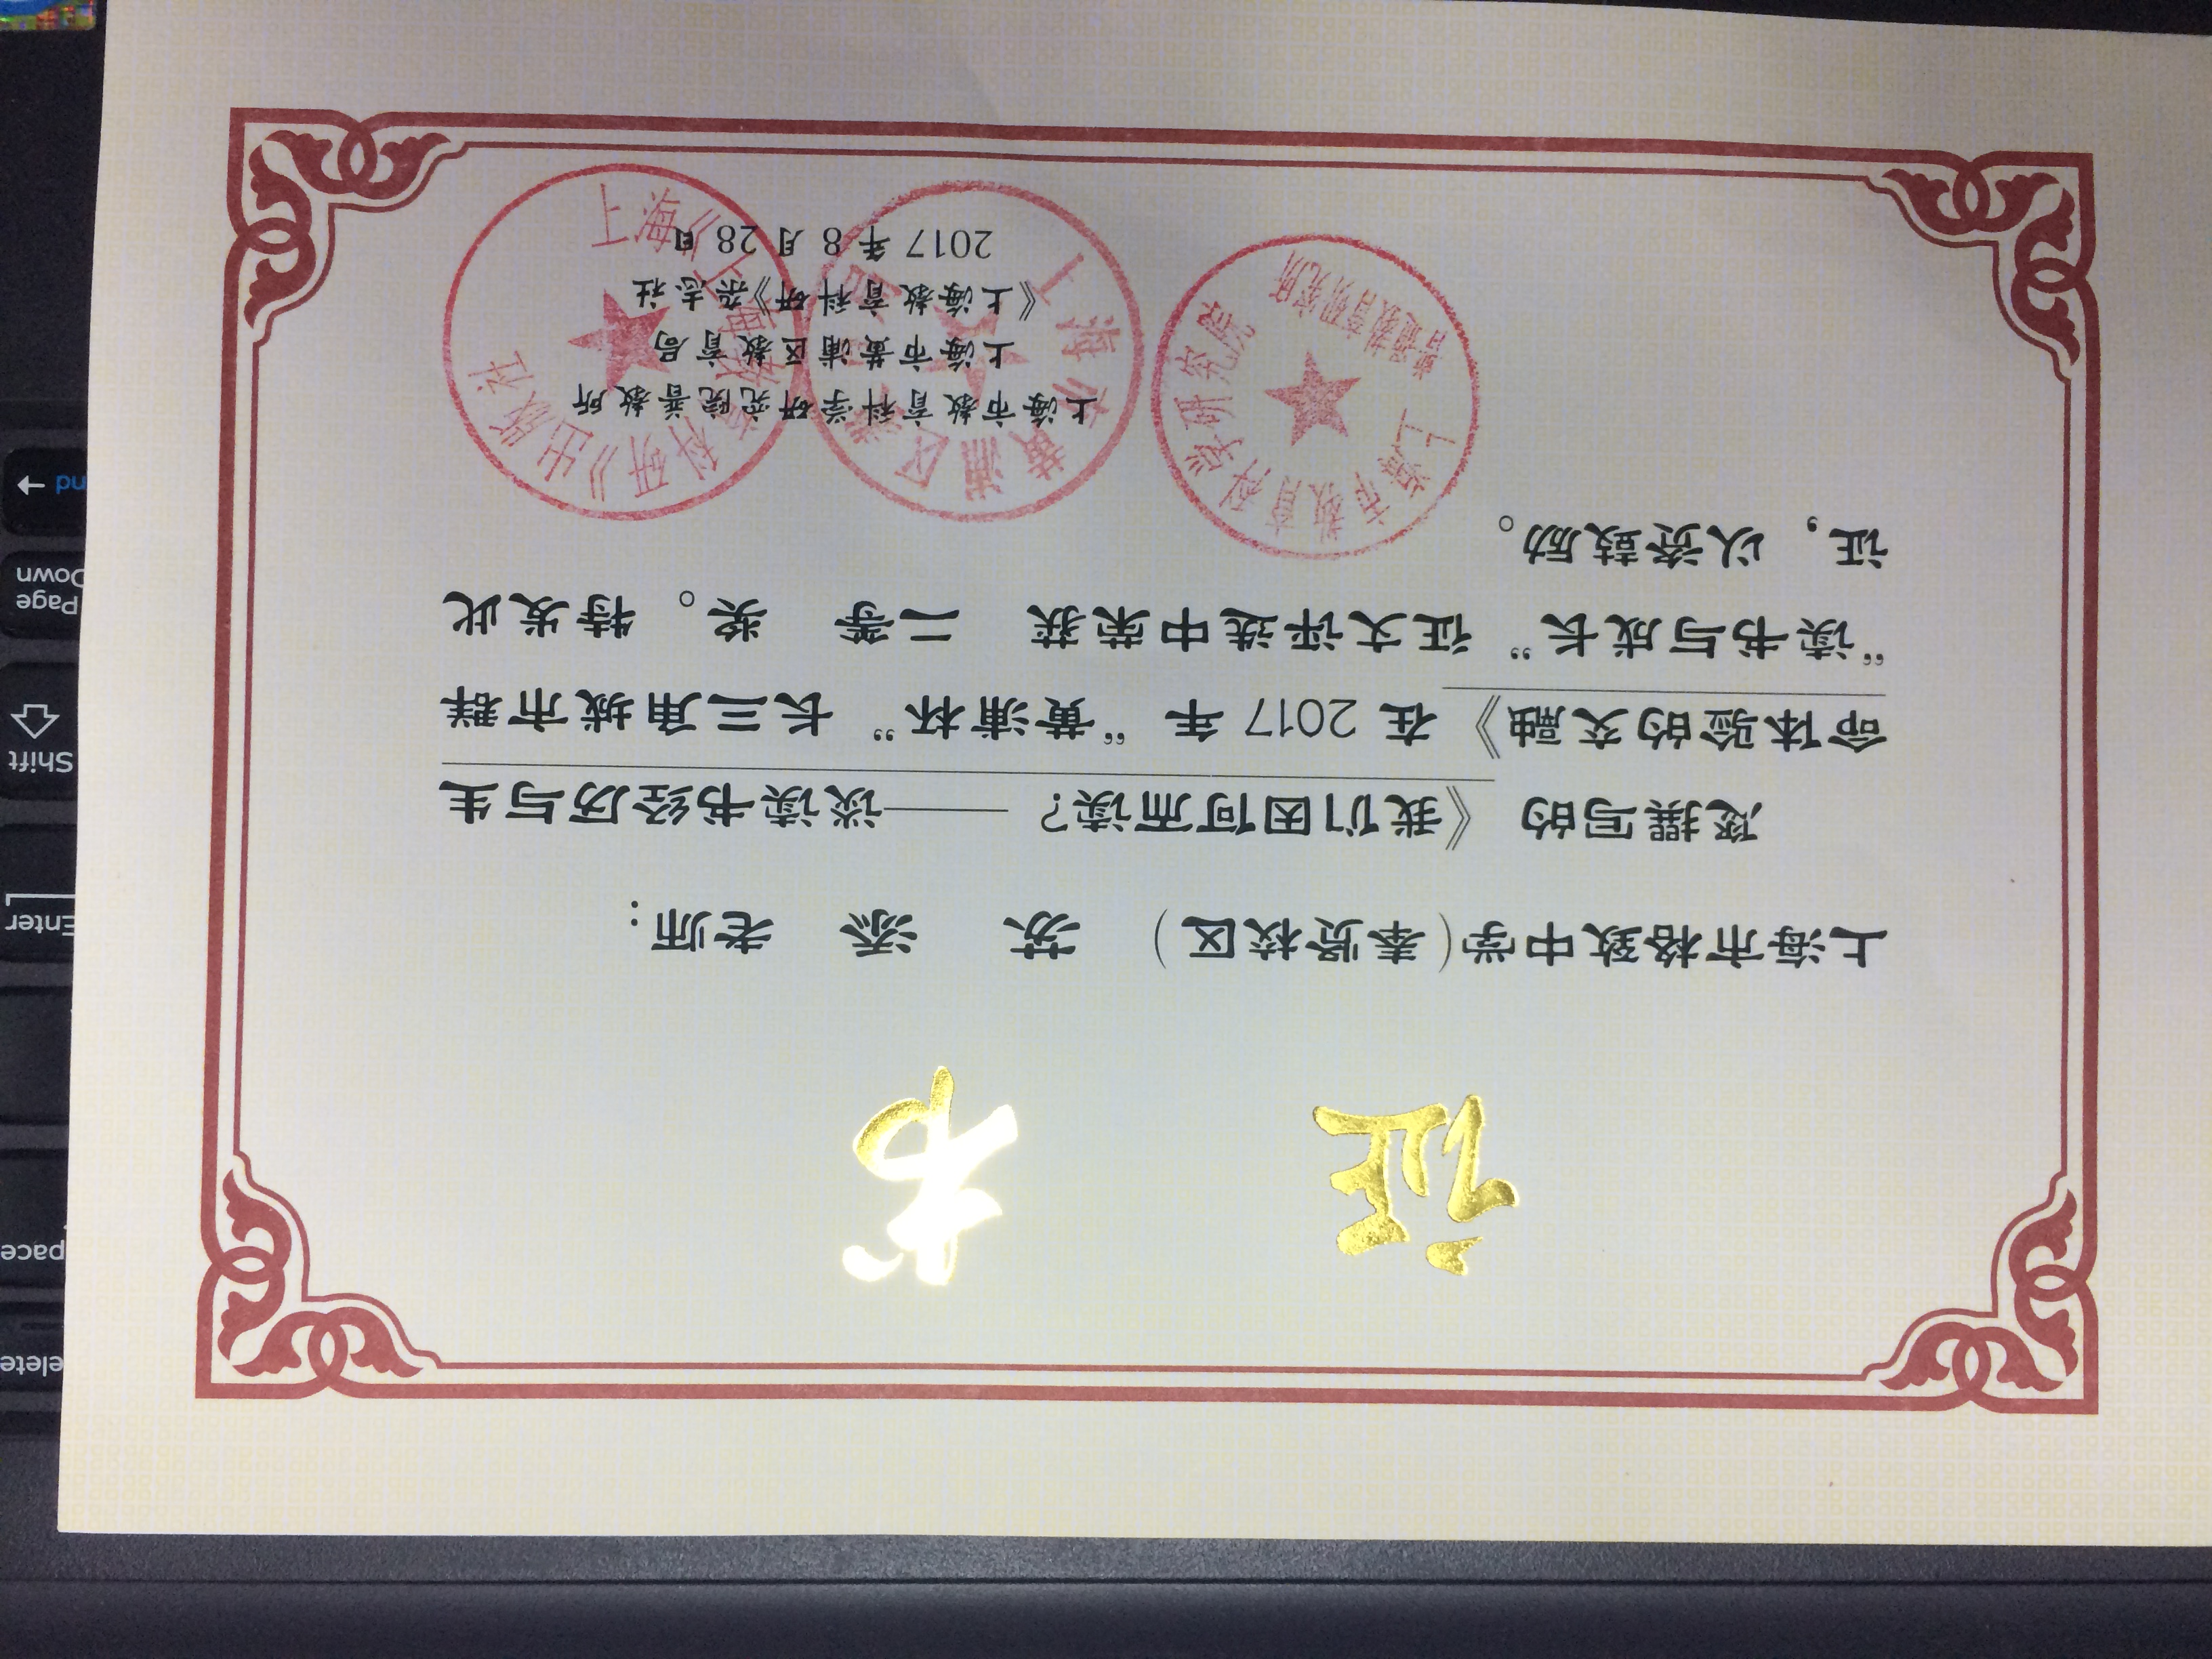 证 书
上海市格致中学(奉贤校区) 苏 添 老师:
您撰写的 《我们因何而读? ——谈读书经历与生
命体验的交融》 在 2017 年 “黄浦杯” 长三角城市群
“读书与成长” 征文评选中荣获 二等 奖。 特发此
证, 以资鼓励。
上海市教育科学研究院普教所
上海市黄浦区教育局
《上海教育科研》杂志社
2017 年 8 月 28 日
上海市教育科学研究院
普通教育研究所
Page
Down
Shift
Enter